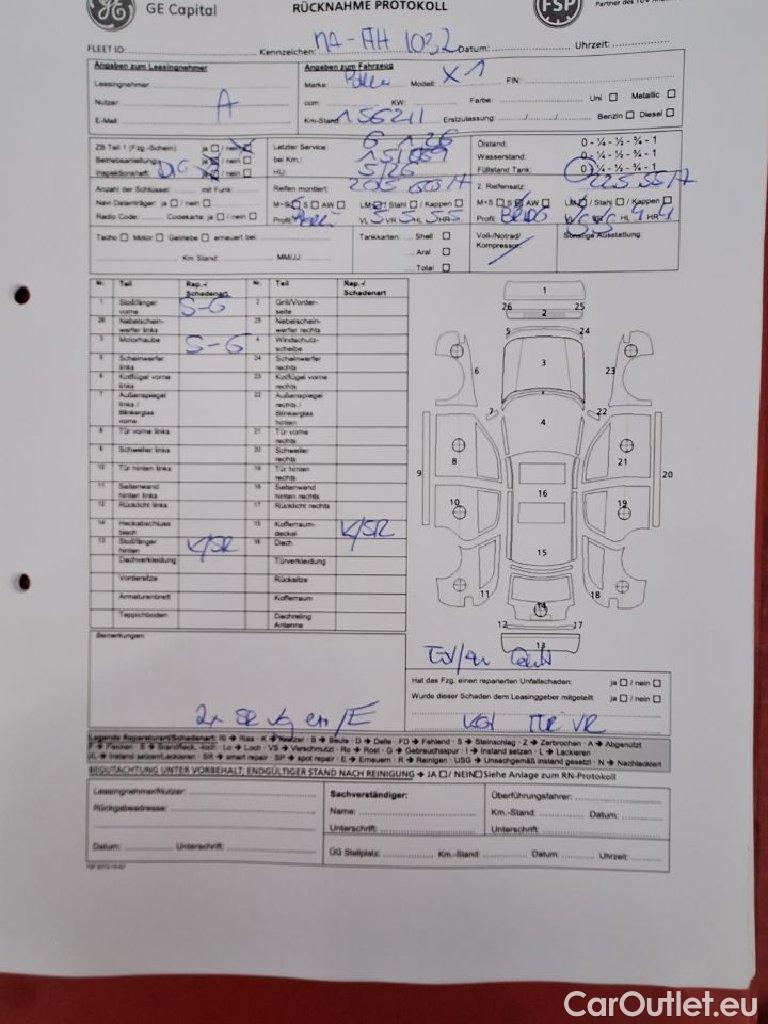 GE Capital
RÜCKNAHME PROTOKOLL
FSP
Partner des TÜV
FLEET ID: Kennzeichen: MA-AH 1032 Datum: Uhrzeit:
Angaben zum Leasingnehmer
Leasingnehmer:
Nutzer: A
E-Mail:
Angaben zum Fahrzeug
Marke: Modell: X1 FIN:
ccm: KW: Farbe: Uni Metallic
Km-Stand: 156211 Erstzulassung: Benzin Diesel
ZB Teil 1 (Fzg.-Schein): ja / nein
Betriebsanleitung: ja / nein
Inspektionsheft: ja / nein
Letzter Service: 6 1.26
bei Km.:
HU: 5/26
Ölstand: 0 - ¼ - ½ - ¾ - 1
Wasserstand: 0 - ¼ - ½ - ¾ - 1
Füllstand Tank: 0 - ¼ - ½ - ¾ - 1
Anzahl der Schlüssel: mit Funk:
Navi Datenträger: ja / nein
Radio Code: Codekarte: ja / nein
Reifen montiert:
M+S S AW LM / Stahl / Kappen
Profil: VL VR HL HR
2. Reifensatz:
M+S S AW LM / Stahl / Kappen
Profil: HL HR
Tacho Motor Getriebe erneuert bei:
Km Stand: MM/JJ
Tankkarten Shell
Aral
Total
Voll-/Notrad/
Kompressor:
Sonstige Ausstattung:
Nr. Teil Rap.-/ Schadenart Nr. Teil Rap.-/ Schadenart
1 Stoßfänger vorne S-G 2 Grill/Vorderseite
26 Nebelscheinwerfer links 25 Nebelscheinwerfer rechts
3 Motorhaube S-G 4 Windschutzscheibe
5 Scheinwerfer links 24 Scheinwerfer rechts
6 Kotflügel vorne links 23 Kotflügel vorne rechts
7 Außenspiegel links / Blinkerglas vorne 22 Außenspiegel rechts / Blinkerglas hinten
8 Tür vorne links 21 Tür vorne rechts
9 Schweller links 20 Schweller rechts
10 Tür hinten links 19 Tür hinten rechts
11 Seitenwand hinten links 18 Seitenwand hinten rechts
12 Rücklicht links 17 Rücklicht rechts
14 Heckabschlussblech 15 Kofferraumdeckel K/SR
13 Stoßfänger hinten K/SR 16 Dach
Dachverkleidung Türverkleidung
Vordersitze Rücksitze
Armaturenbrett Kofferraum
Teppichboden Dachreling Antenne
1
26 25
2
5 24
3
6 23
7 22
4
8 21
9 20
16
10 19
15
11 18
14
12 17
13
Bemerkungen:
Hat das Fzg. einen reparierten Unfallschaden: ja / nein
Wurde dieser Schaden dem Leasinggeber mitgeteilt: ja / nein
Legende Reparaturart/Schadenart: Ri → Riss - K → Kratzer - B → Beule - D → Delle - FD → Fehlend - S → Steinschlag - Z → Zerbrochen - A → Abgenutzt
F → Flecken - B → Brandfleck, -loch - Lo → Loch - VS → Verschmutzt - Ro → Rost - G → Gebrauchsspur - I → Instand setzen - L → Lackieren
IL → Instand setzen/Lackieren - SR → smart repair - SP → spot repair - E → Erneuern - R → Reinigen - USG → Unsachgemäß instand gesetzt - N → Nachlackiert
BEGUTACHTUNG UNTER VORBEHALT; ENDGÜLTIGER STAND NACH REINIGUNG → JA / NEIN Siehe Anlage zum RN-Protokoll
Leasingnehmer/Nutzer:
Rückgabeadresse:
Datum: Unterschrift:
Sachverständiger:
Name:
Unterschrift:
Überführungsfahrer:
Km.-Stand: Datum:
Unterschrift:
ÜG Stellplatz: Km.-Stand: Datum: Uhrzeit:
CarOutlet.eu